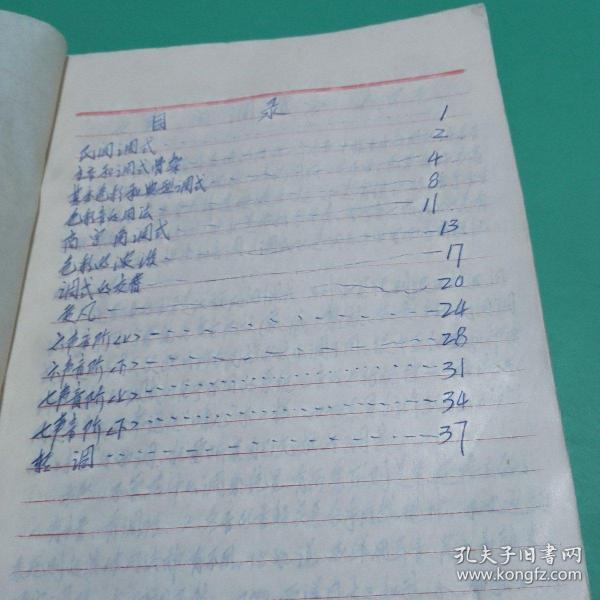 目 录
民间调式 1
主音和调式骨架 2
基本色彩和典型调式 4
色彩音的用法 8
商宫角调式 11
色彩的浓淡 13
调式的交替 17
变凡 20
六声音阶<上> 24
六声音阶<下> 28
七声音阶<上> 31
七声音阶<下> 34
转调 37
孔夫子旧书网
www.kongfz.com